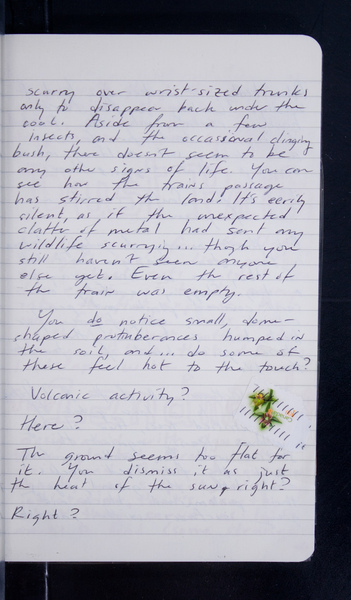 scurry over wrist-sized trunks
only to disappear back under the
root. Aside from a few
insects, and the occassional clinging
bush, there doesn't seem to be
any other signs of life. You can
see how the trains passage
has stirred the land. It's eerily
silent, as if the unexpected
clatter of metal had sent any
wildlife scurrying... though you
still haven't seen anyone
else yet. Even the rest of
the train was empty.
You do notice small, dome-
shaped protruberances humped in
the soil, and... do some of
these feel hot to the touch?
Volcanic activity?
Here?
The ground seems too flat for
it. You dismiss it as just
the heat of the sun, right?
Right?